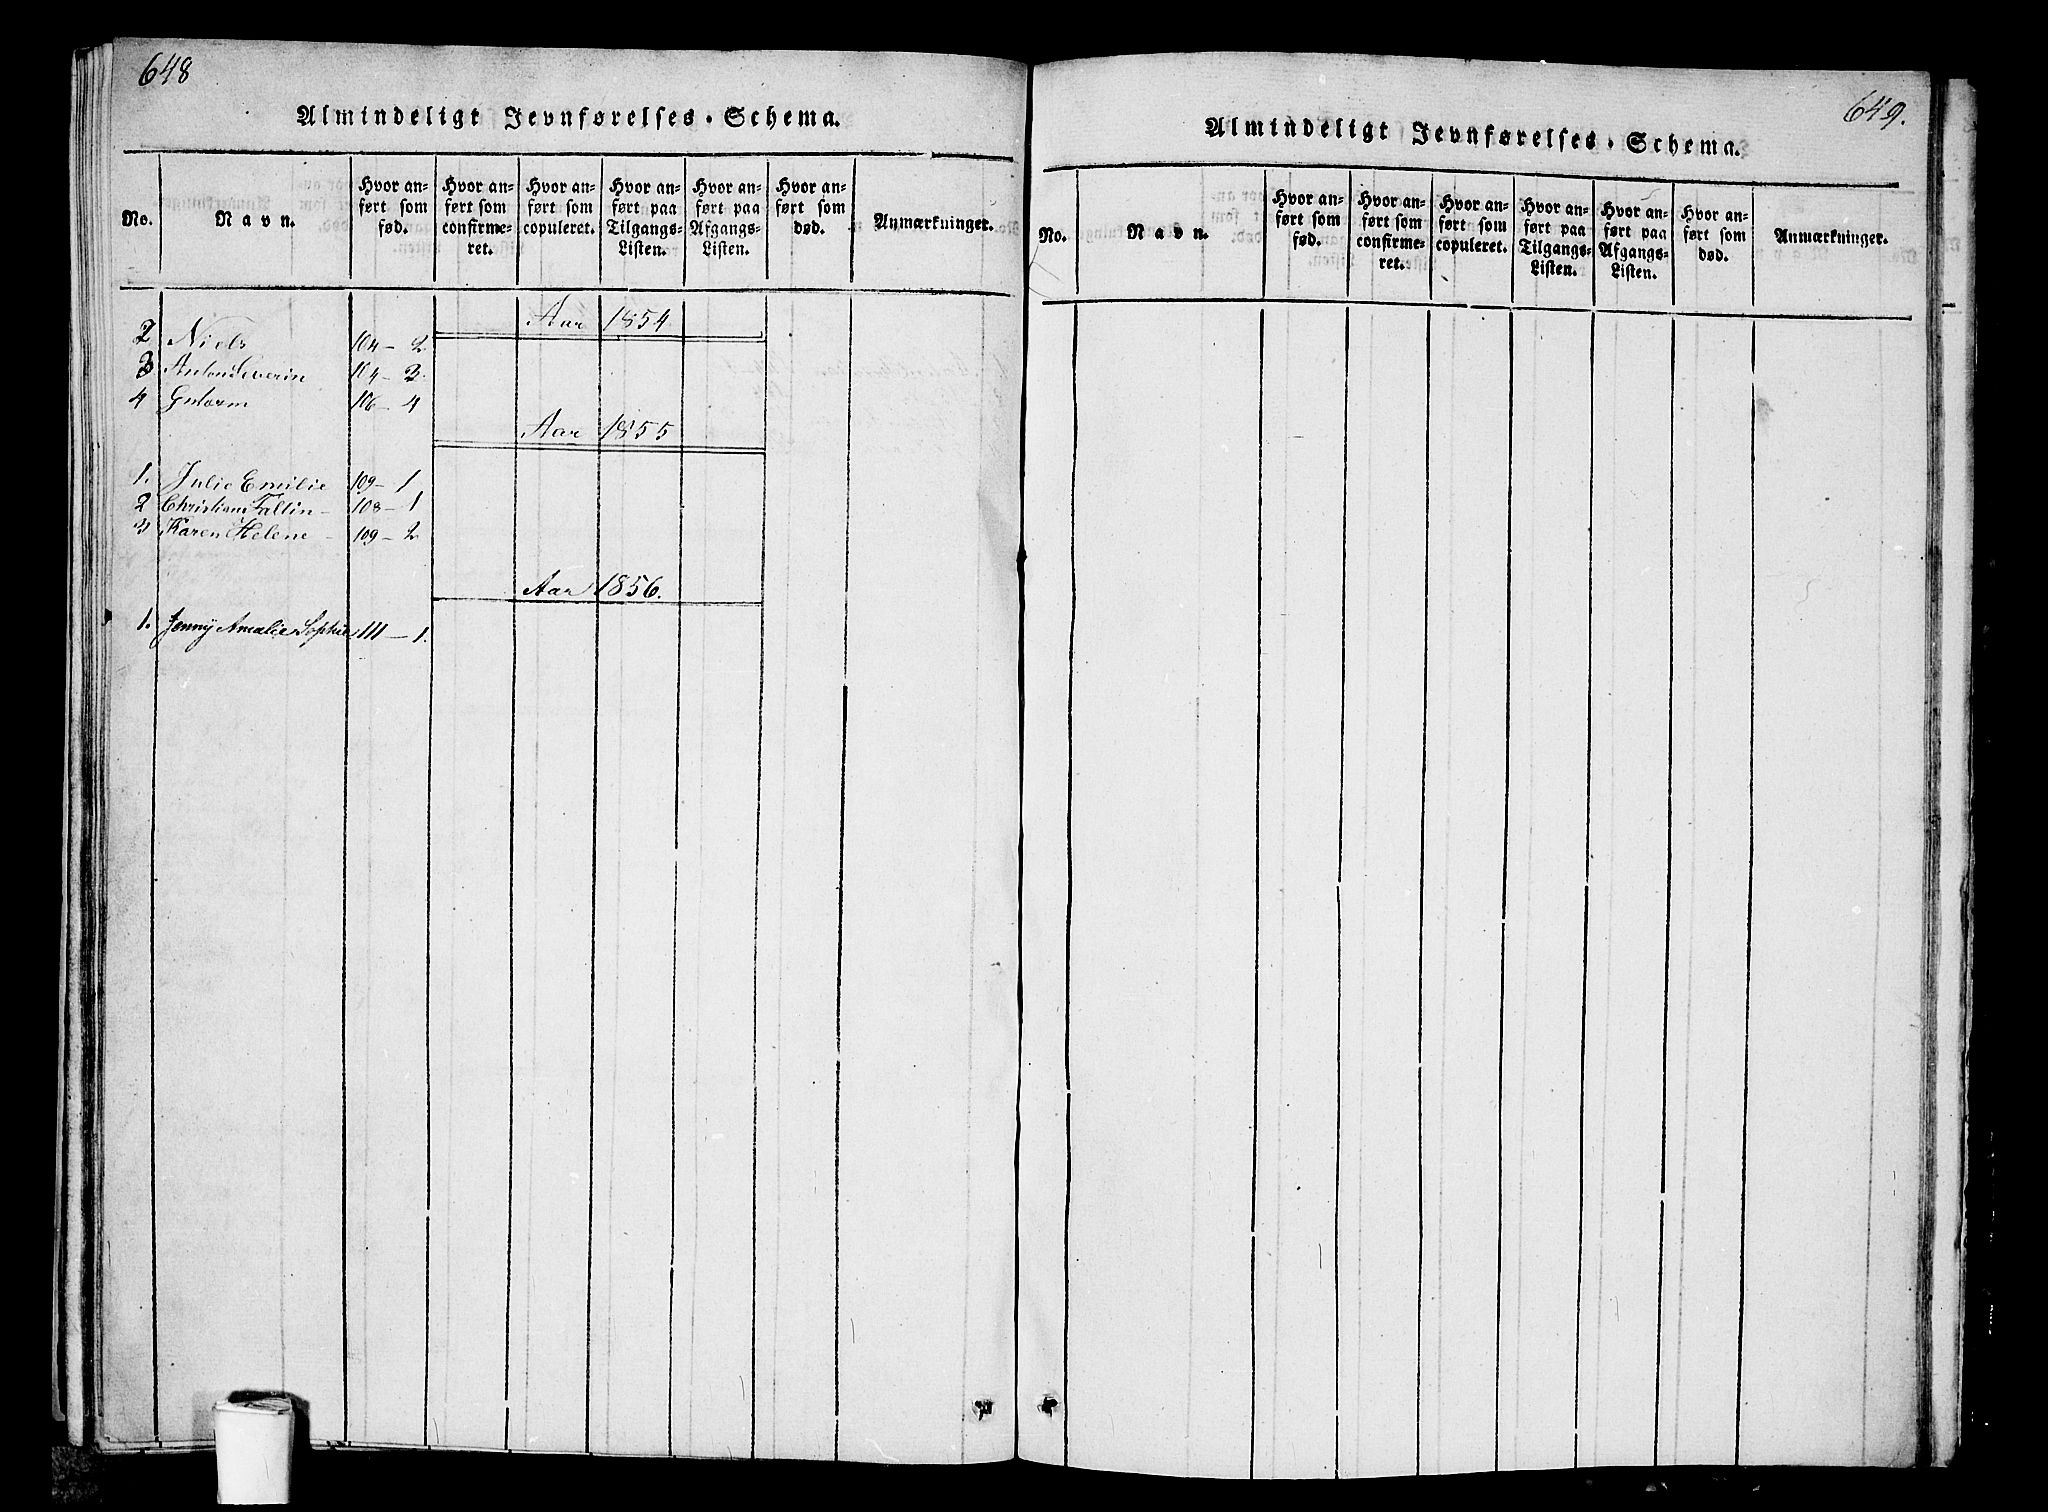 648
Almindeligt Jevnførelses-Schema.
No. Navn. Hvor anført som fød. Hvor anført som confirmeret. Hvor anført som copuleret. Hvor anført paa Tilgangs-Listen. Hvor anført paa Afgangs-Listen. Hvor anført som død. Anmærkninger.
Aar 1854
2 Niels 104 - 2
3 Anton Severin 104 - 3.
4 Gutorm 106 - 4
Aar 1855
1. Julie Emilie 109 - 1
2 Christiane Faltin - 108 - 1
3 Karen Helene - 109 - 2
Aar 1856.
1. Jenny Amalie Sophie 111 - 1.
649.
Almindeligt Jevnførelses-Schema.
No. Navn. Hvor anført som fød. Hvor anført som confirmeret. Hvor anført som copuleret. Hvor anført paa Tilgangs-Listen. Hvor anført paa Afgangs-Listen. Hvor anført som død. Anmærkninger.